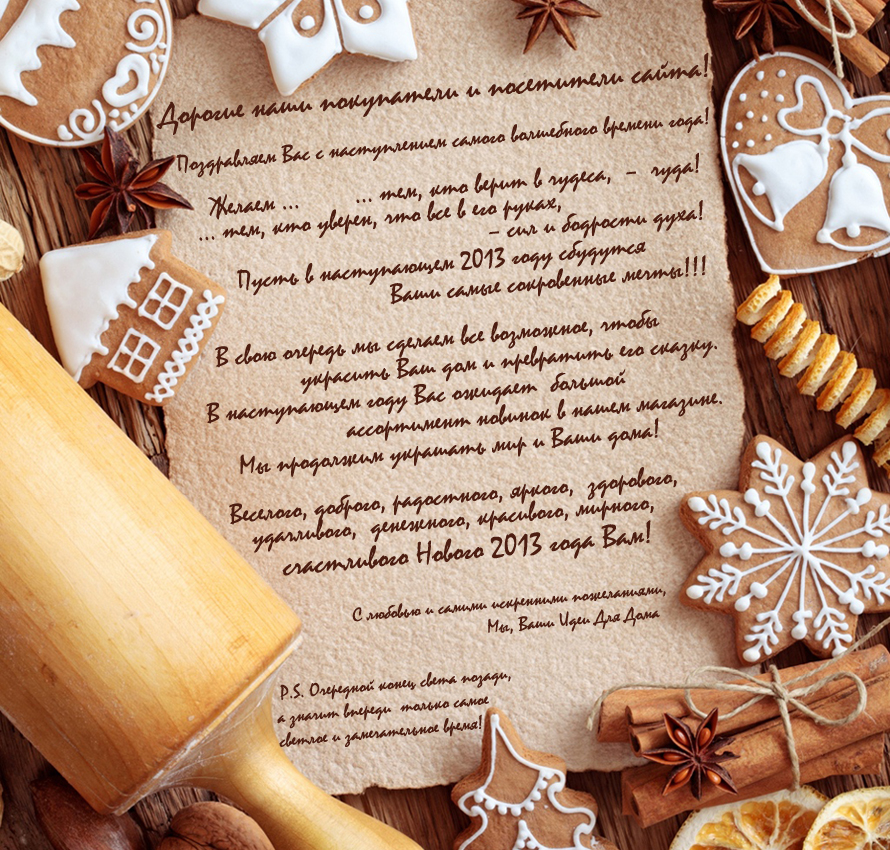 Дорогие наши покупатели и посетители сайта!
Поздравляем Вас с наступлением самого волшебного времени года!
Желаем ... ... тем, кто верит в чудеса, – чуда!
... тем, кто уверен, что все в его руках,
– сил и бодрости духа!
Пусть в наступающем 2013 году сбудутся
Ваши самые сокровенные мечты!!!
В свою очередь мы сделаем все возможное, чтобы
украсить Ваш дом и превратить его сказку.
В наступающем году Вас ожидает большой
ассортимент новинок в нашем магазине.
Мы продолжим украшать мир и Ваши дома!
Веселого, доброго, радостного, яркого, здорового,
удачливого, денежного, красивого, мирного,
счастливого Нового 2013 года Вам!
С любовью и самими искренними пожеланиями,
Мы, Ваши Идеи Для Дома
P.S. Очередной конец света позади,
а значит впереди только самое
светлое и замечательное время!